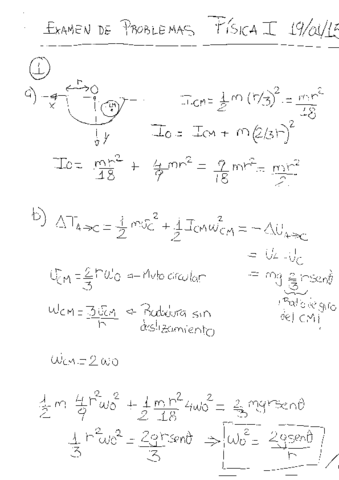 EXAMEN DE PROBLEMAS FÍSICA I 19/01/15
①
a) r O x y
I_CM = 1/2 m (r/3)² = mr²/18
I_O = I_CM + m(2/3r)²
I_O = mr²/18 + 4/9 mr² = 9/18 mr² = mr²/2
b) ΔT_A→C = 1/2 m v_C² + 1/2 I_CM ω_CM² = -ΔU_A→C
= U_A - U_C
v_CM = 2/3 r ω_0 → Mvto circular = mg 2/3 r senθ
Radio de giro del CM!
ω_CM = 3v_CM/r → Rodadura sin
deslizamiento
ω_CM = 2ω_0
1/2 m 4/9 r² ω_0² + 1/2 mr²/18 4ω_0² = 2/3 mgr senθ
1/3 r² ω_0² = 2gr senθ/3 ⇒ ω_0² = 2g senθ/r